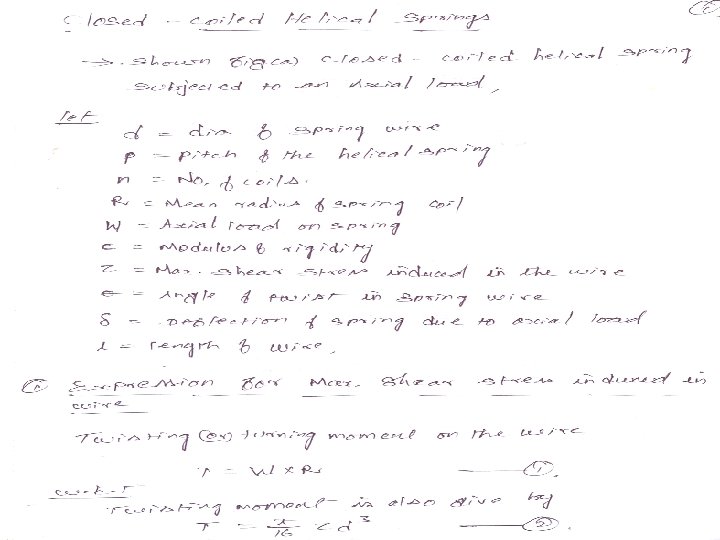 Closed - coiled Helical Springs
→ Shown fig(a) closed - coiled helical spring
subjected to an Axial load,
let
d = dia of spring wire
p = pitch of the helical spring
n = No. of coils.
R = Mean radius of spring coil
W = Axial load on spring
C = Modulus of rigidity
τ = Max. shear stress induced in the wire
θ = Angle of twist in spring wire
δ = Deflection of spring due to axial load
l = length of wire,
① Expression for Max. Shear stress induced in
wire
Twisting (or) turning moment on the wire
T = W x R ——— ①.
W.K.T
Twisting moment is also give by
T = π/16 τ d³ ——— ②.